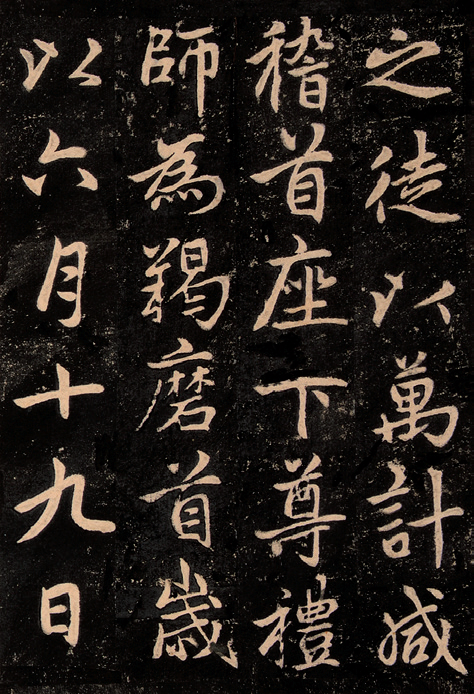 之徒以萬計咸
稽首座下尊禮
師為羯磨首歲
以六月十九日